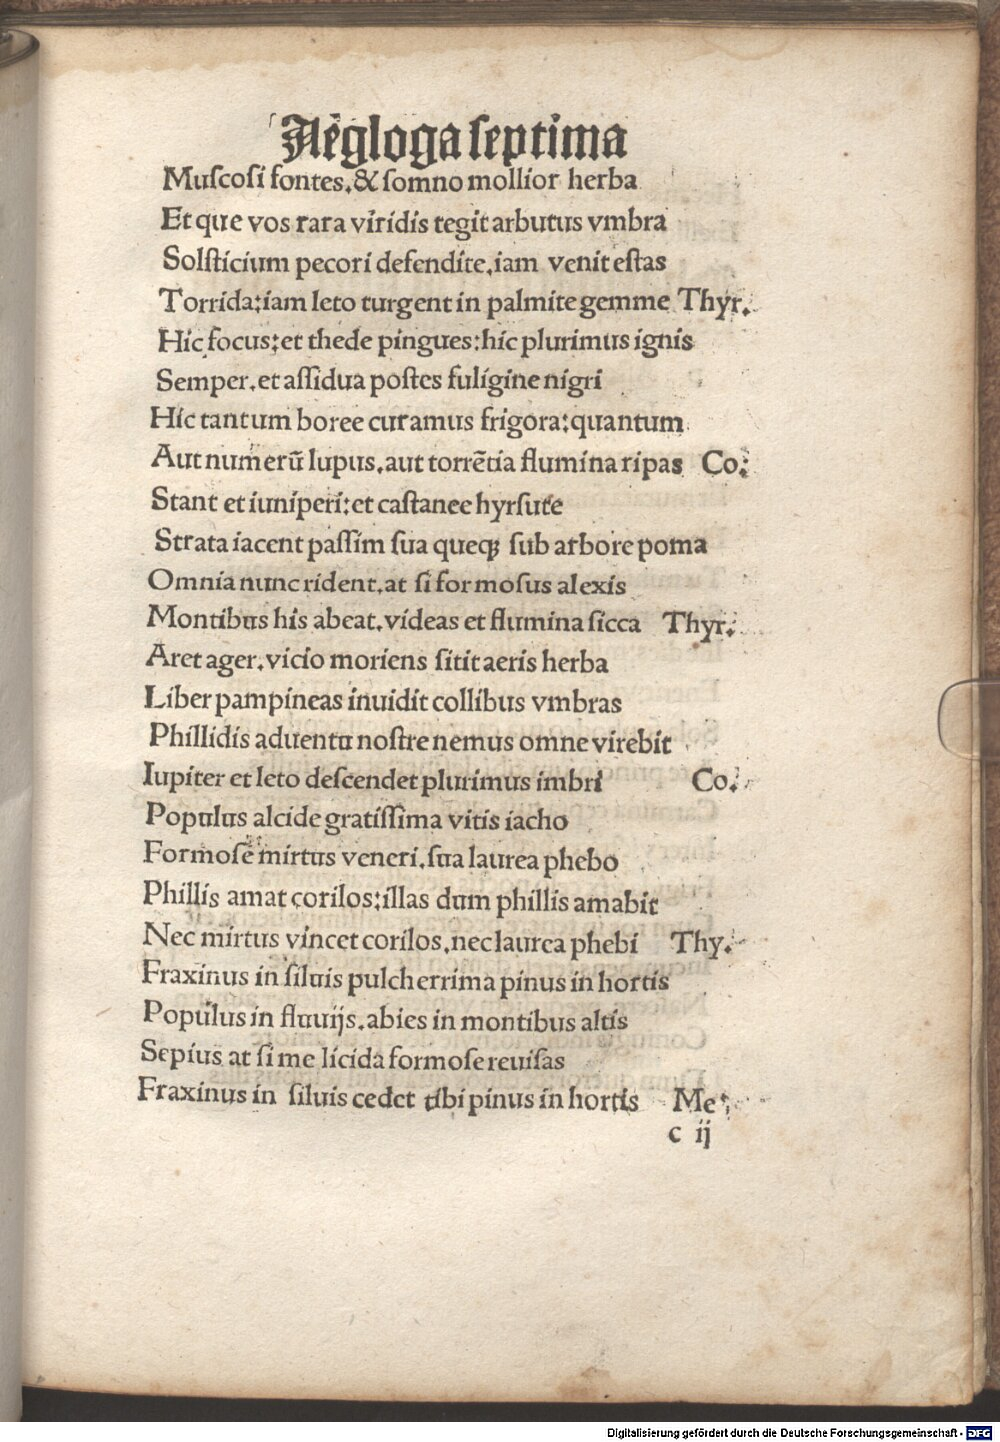 Aēgloga ſeptima
Muſcoſi fontes.& ſomno mollior herba
Et que vos rara viridis tegit arbutus vmbra
Solſticium pecori defendite.iam venit eſtas
Torrida:iam leto turgent in palmite gemme Thyr.
Hic focus:et thede pingues:hic plurimus ignis
Semper.et aſſidua poſtes fuligine nigri
Hic tantum boree curamus frigora:quantum
Aut numerū lupus.aut torrētia flumina ripas Co:
Stant et iuniperi:et caſtanee hyrſute
Strata iacent paſſim ſua queqꝫ ſub arbore poma
Omnia nunc rident.at ſi formoſus alexis
Montibus his abeat.videas et flumina ſicca Thyr.
Aret ager.vicio moriens ſitit aeris herba
Liber pampineas inuidit collibus vmbras
Phillidis aduentu noſtre nemus omne virebit
Iupiter et leto deſcendet plurimus imbri Co.
Populus alcide gratiſſima vitis iacho
Formoſe mirtus veneri.ſua laurea phebo
Phillis amat corilos:illas dum phillis amabit
Nec mirtus vincet corilos.nec laurea phebi Thy.
Fraxinus in ſiluis pulcherrima pinus in hortis
Populus in fluuijs.abies in montibus altis
Sepius at ſi me licida formoſe reuiſas
Fraxinus in ſiluis cedet tibi pinus in hortis Me:
c ij
Digitalisierung gefördert durch die Deutsche Forschungsgemeinschaft - DFG